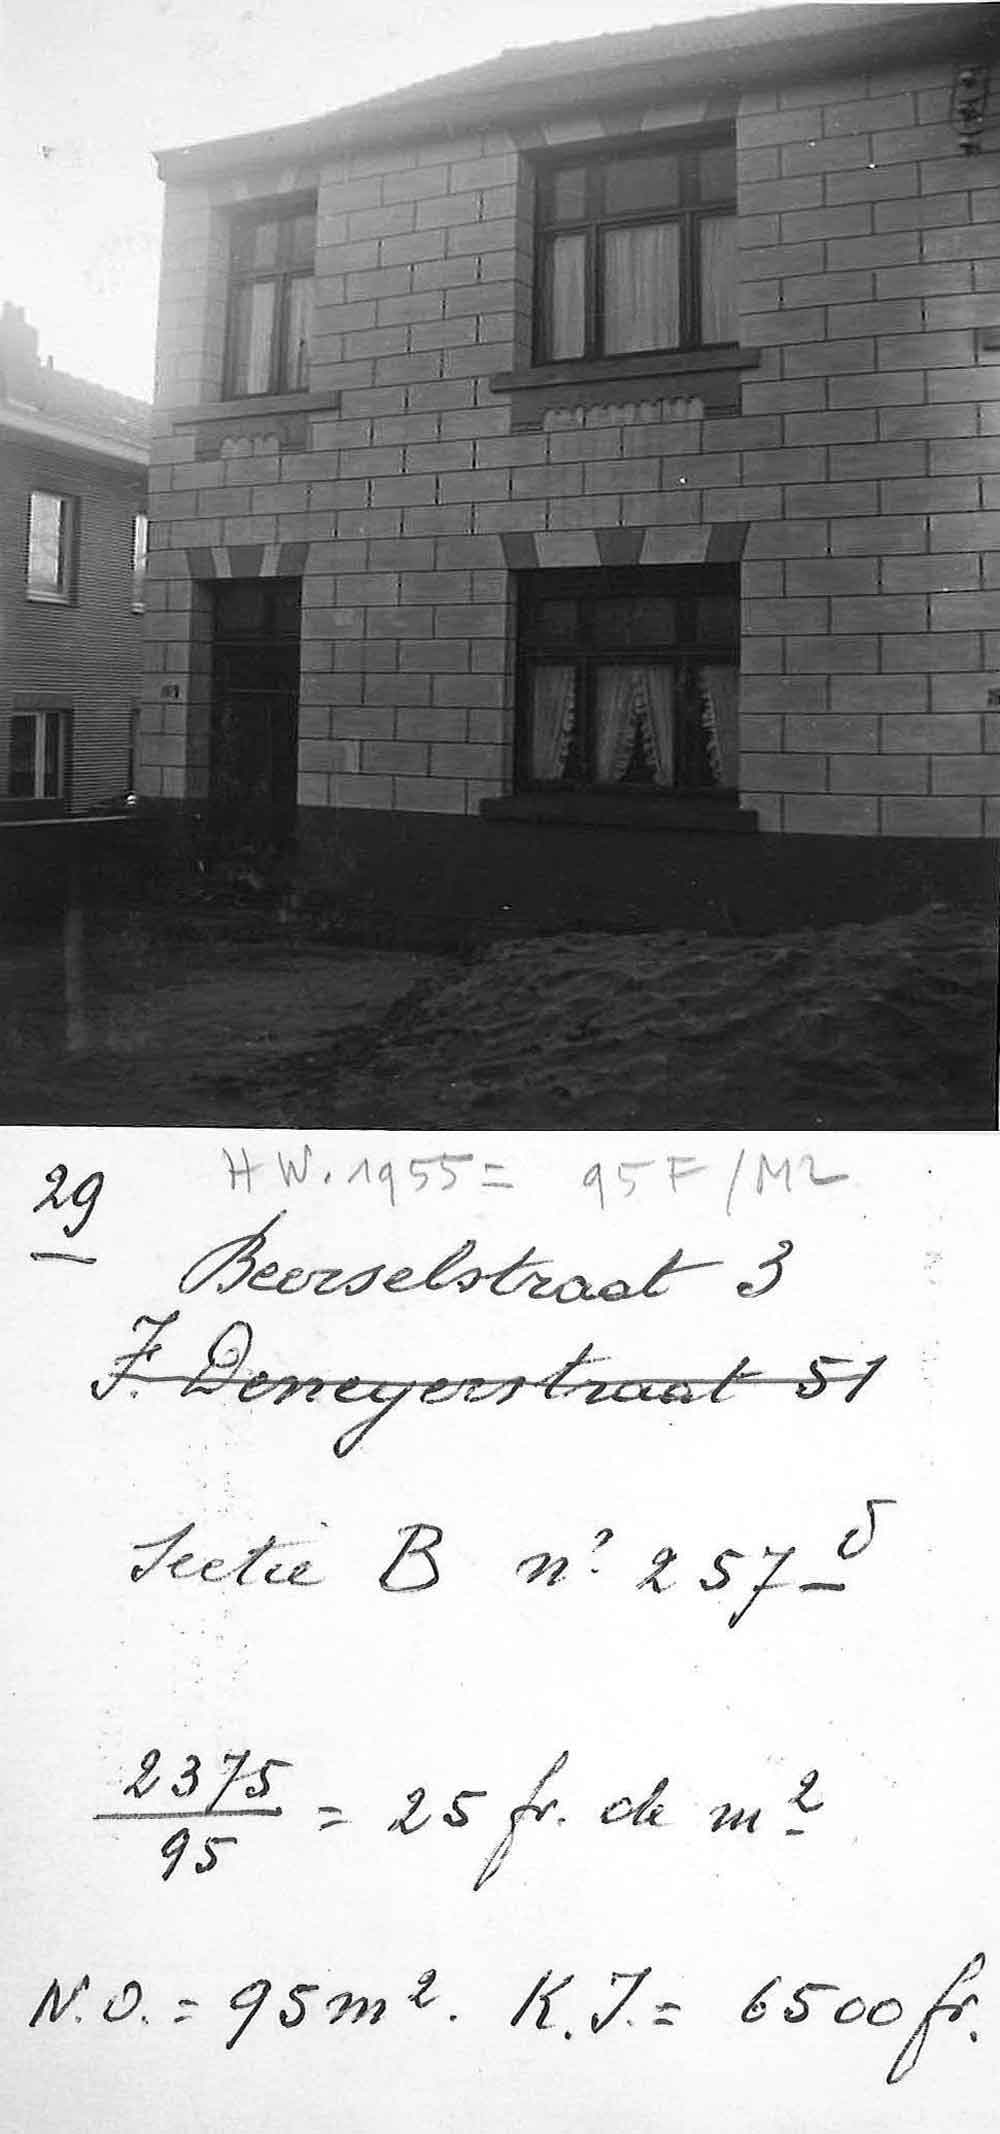 29
HW. 1955 = 95 F/M2
Beerselstraat 3
F. Demeyerstraat 51
Sectie B n° 257 δ
2375
95
= 25 fr. de m²
N.O. = 95 m². K.I. = 6500 fr.